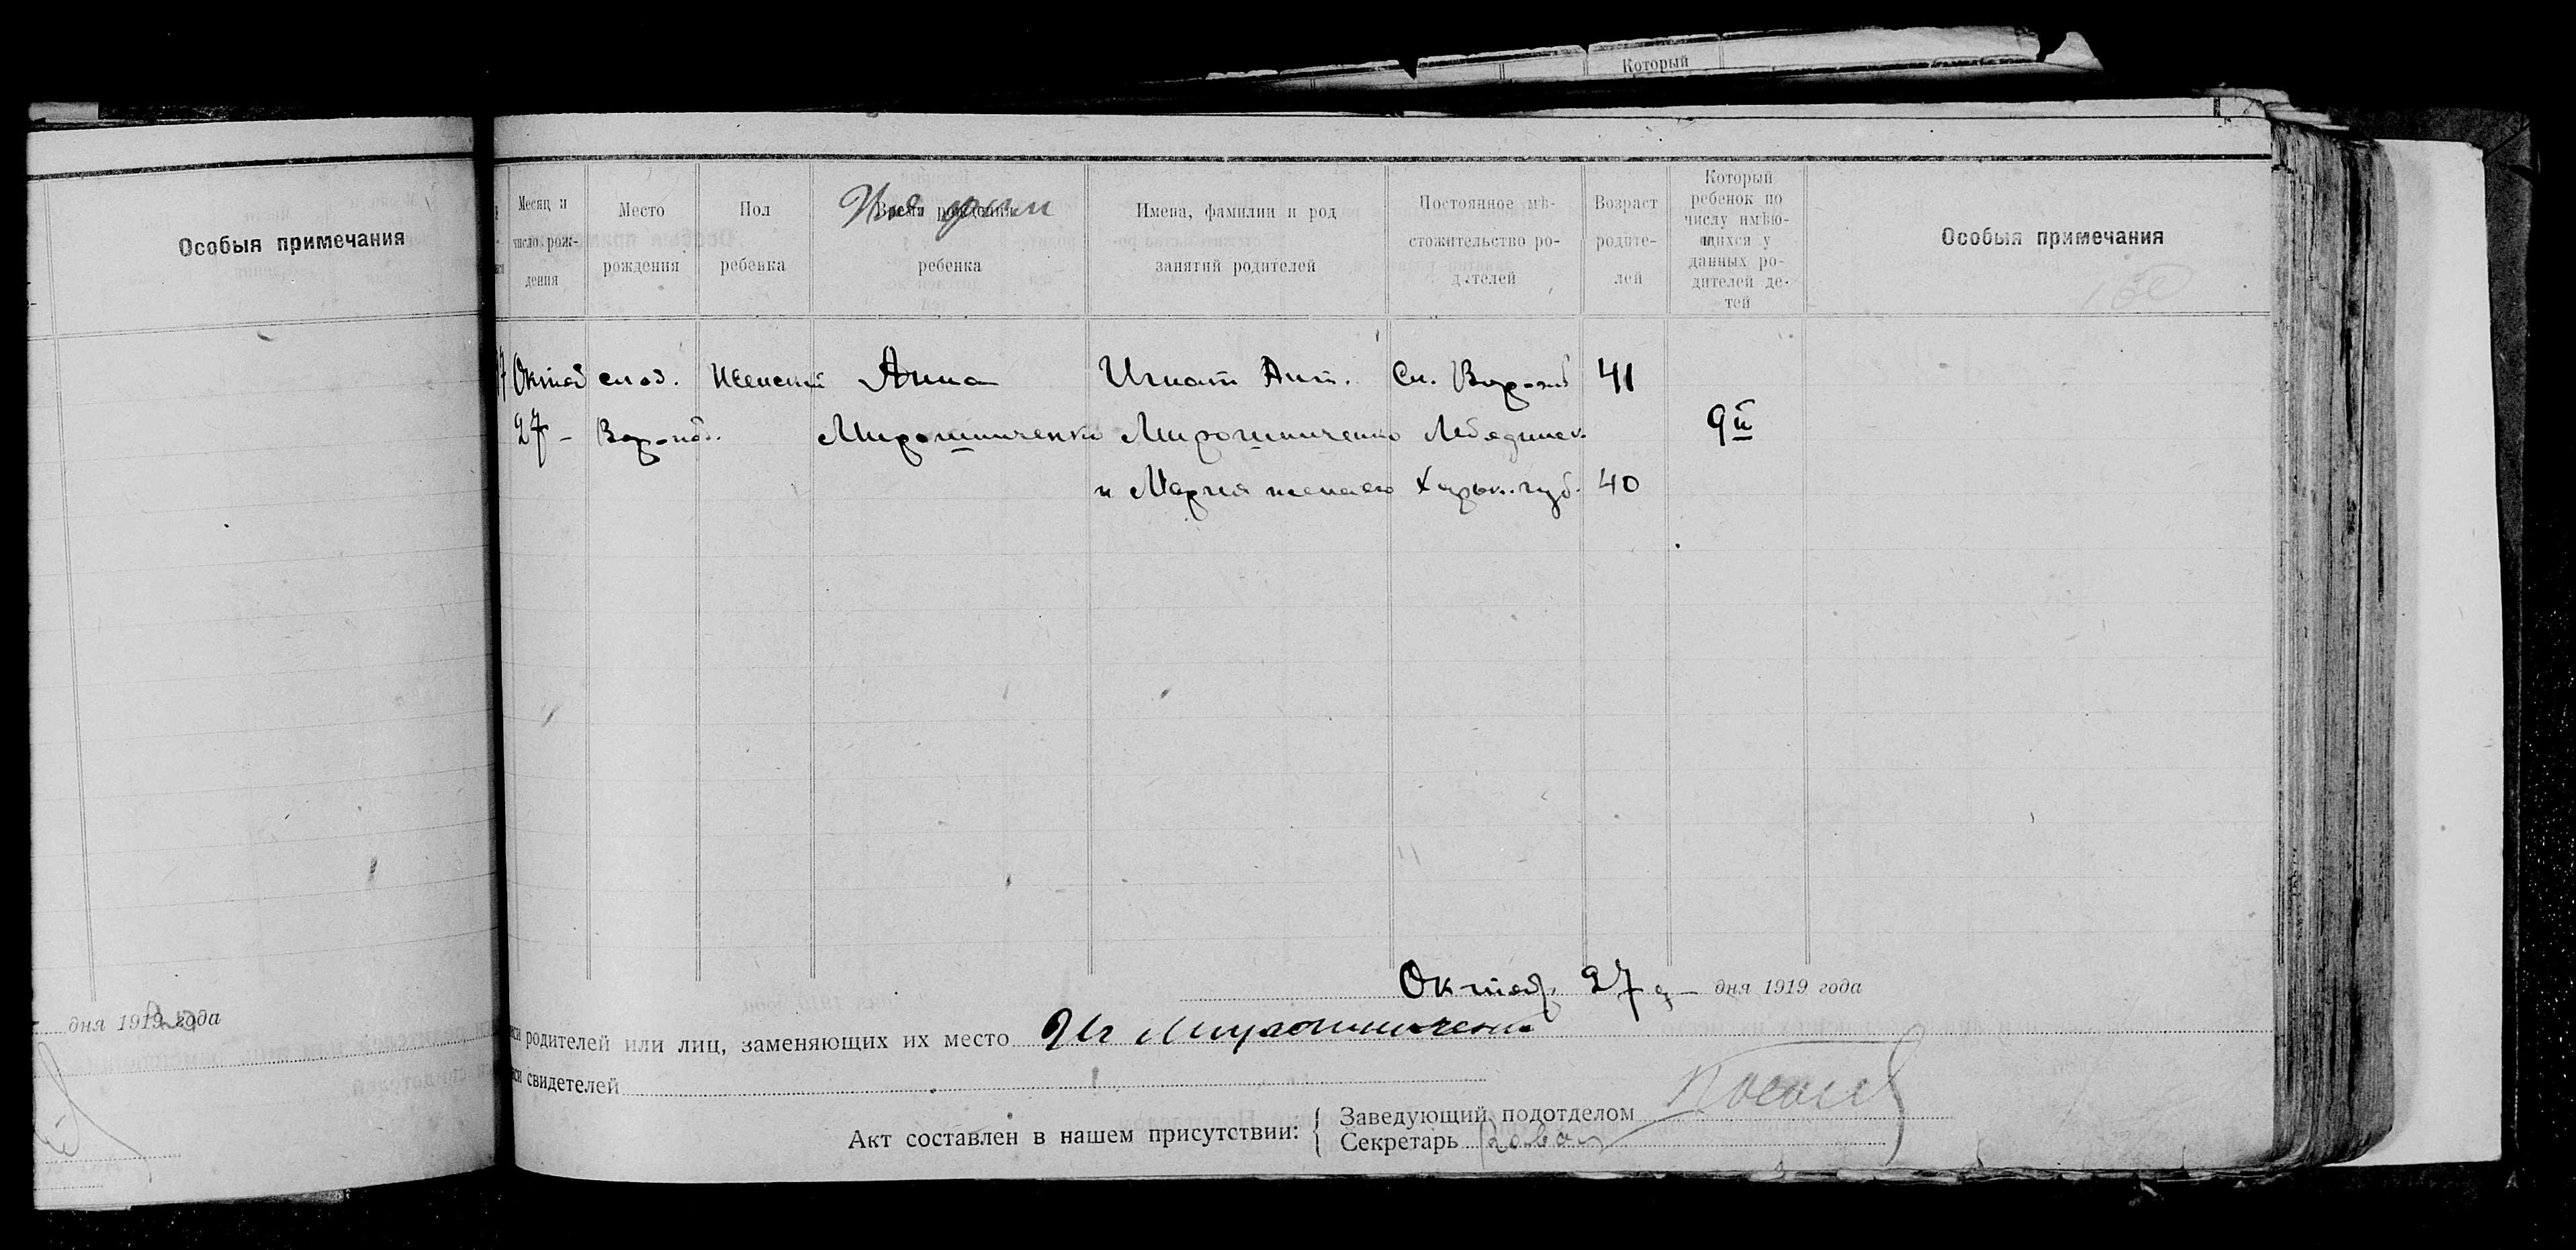 Который
Особыя примечания
дня 1919 года
Месяц и число рождения
Место рождения
Пол ребенка
Имя фам
Время рождения ребенка
Имена, фамилии и род занятий родителей
Постоянное мѣстожительство родителей
Возраст родителей
Который ребенок по числу имѣющихся у данных родителей детей
Особыя примечания
7 Октяб слоб. Женский Анна Игнат Ант. Сл. Ворожб 41
27 - Ворожб. Мирошниченко Мирошниченко Лебединск. 9й
и Мария жена его Харьк. губ. 40
Октяб. 27 д дня 1919 года
родителей или лиц, заменяющих их место Иг Мирошниченко
свидетелей
Акт составлен в нашем присутствии:
Заведующий подотделом
Секретарь